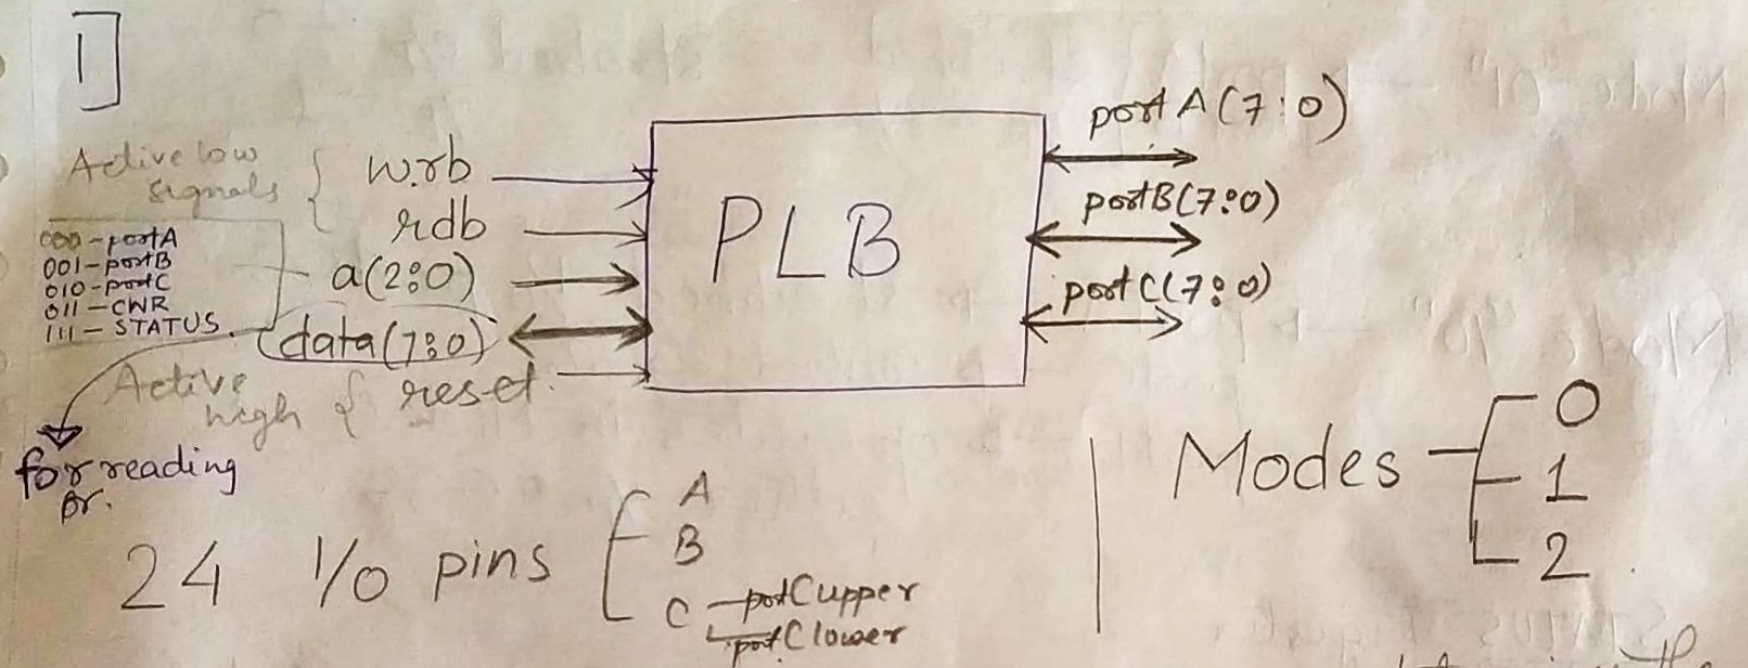 1]
Active low
signals
wrb
rdb
a(2:0)
data(7:0)
reset
Active
high
000-portA
001-portB
010-portC
011-CWR
111-STATUS
for reading
pr.
PLB
portA(7:0)
portB(7:0)
portC(7:0)
24 I/O pins
A
B
C
portCupper
portClower
Modes
0
1
2